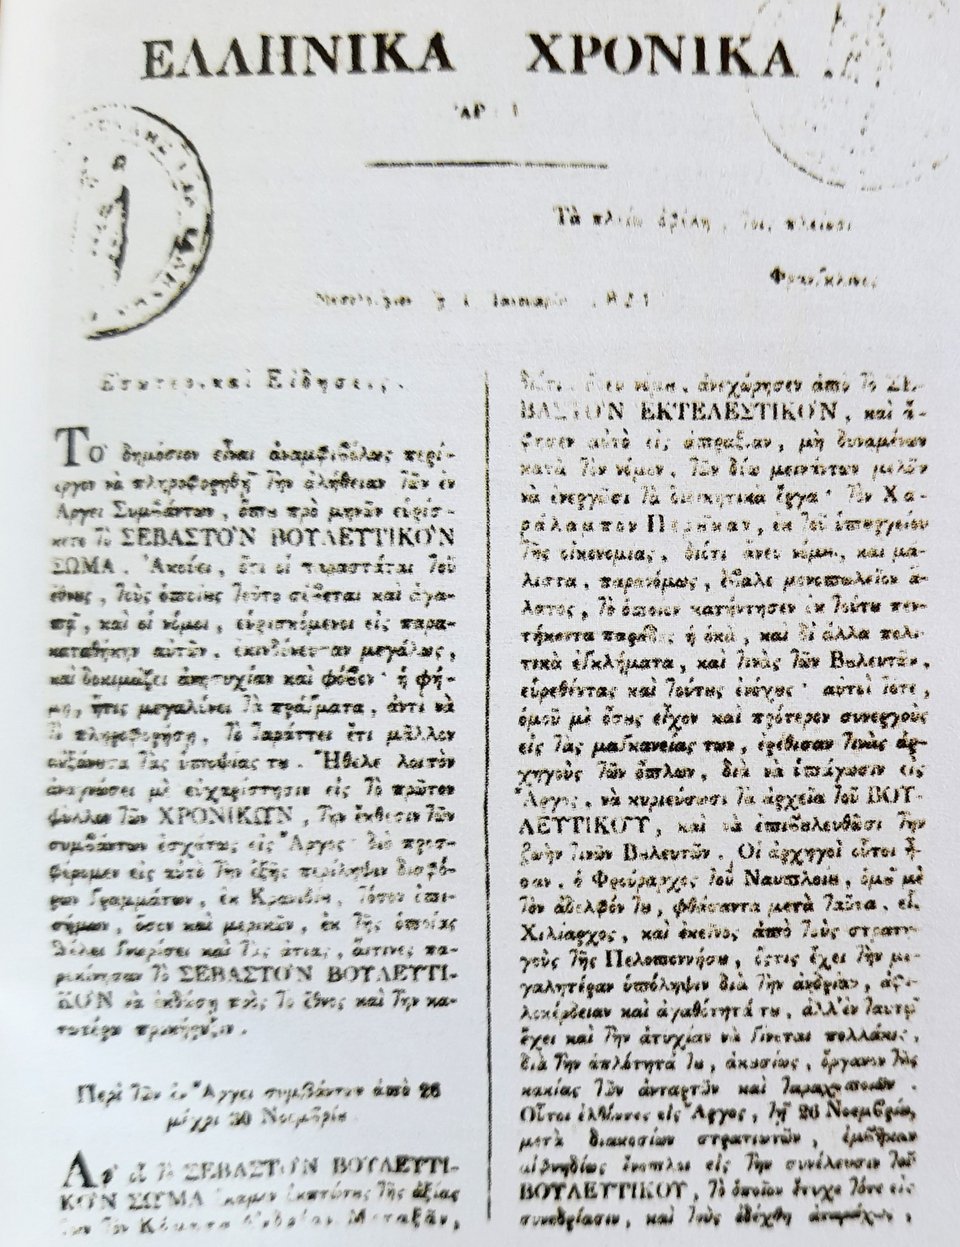 ΕΛΛΗΝΙΚΑ ΧΡΟΝΙΚΑ
Τὰ πλείω
Φραγκλῖνος
Εἰδήσεις.
Το δημόσιον εἶναι ἀναμφιβόλως περί-
εργον νὰ πληροφορηθῇ τὴν ἀλήθειαν τῶν ἐν
Ἄργει Συμβάντων, ὅπου πρὸ μηνῶν εὑρίσ-
κετο τὸ ΣΕΒΑΣΤΟ'Ν ΒΟΥΛΕΥΤΙΚΟ'Ν
ΣΩΜΑ. Ἀκούει, ὅτι οἱ παραστάται τοῦ
ἔθνους, τοὺς ὁποίους τοῦτο σέβεται καὶ ἀγα-
πᾷ, καὶ οἱ νόμοι, εὑρισκόμενοι εἰς παρα-
καταθήκην αὐτῶν, ἐκινδύνευσαν μεγάλως,
καὶ δοκιμάζει ἀνησυχίαν καὶ φόβον· ἡ φή-
μη, ἥτις μεγαλύνει τὰ πράγματα, ἀντὶ νὰ
τὸ πληροφορήσῃ, τὸ ταράττει ἔτι μᾶλλον
αὐξάνουσα τὰς ὑποψίας του. Ἤθελε λοιπὸν
ἀναγνώσει μὲ εὐχαρίστησιν εἰς τὸ πρῶτον
φύλλον τῶν ΧΡΟΝΙΚΩΝ, τὴν ἔκθεσιν τῶν
συμβάντων ἐσχάτως εἰς Ἄργος· διὸ προσ-
φέρομεν εἰς αὐτὸ τὴν ἑξῆς περίληψιν διαφό-
ρων γραμμάτων, ἐκ Κρανιδίου, τόσον ἐπι-
σήμων, ὅσον καὶ μερικῶν, ἐκ τῆς ὁποίας
θέλει γνωρίσει καὶ τὰς αἰτίας, αἵτινες πα-
ρεκίνησαν τὸ ΣΕΒΑΣΤΟ'Ν ΒΟΥΛΕΥΤΙ-
ΚΟ'Ν νὰ ἐκδώσῃ πρὸς τὸ ἔθνος καὶ τὴν κα-
τωτέρω προκήρυξιν.
Περὶ τῶν ἐν Ἄργει συμβάντων ἀπὸ 26
μέχρι 30 Νοεμβρίου.
Αφ' οὗ τὸ ΣΕΒΑΣΤΟ'Ν ΒΟΥΛΕΥΤΙ-
ΚΟ'Ν ΣΩΜΑ ἔκαμεν ἐκπτώτους τῆς ἀξίας
των τὸν Κόμητα Ἀνδρέαν Μεταξᾶν,
διότι ἄνευ νόμου, ἀνεχώρησεν ἀπὸ τὸ ΣΕ-
ΒΑΣΤΟ'Ν ΕΚΤΕΛΕΣΤΙΚΟ'Ν, καὶ ἄ-
φησεν αὐτὸ εἰς ἀπραξίαν, μὴ δυναμένων
κατὰ τὸν νόμον, τῶν δύω μεινάντων μελῶν
νὰ ἐνεργῶσι τὰ διοικητικὰ ἔργα· τὸν Χα-
ράλαμπον Περούκαν, ἐκ τοῦ ὑπουργείου
τῆς οἰκονομίας, διότι ἄνευ νόμου, καὶ μά-
λιστα, παρανόμως, ἔβαλε μονοπωλεῖον ἅ-
λατος, τὸ ὁποῖον κατήντησεν ἐκ τούτου πεν-
τήκοντα παράδες ἡ ὀκᾶ, καὶ δι' ἄλλα πολι-
τικὰ ἐγκλήματα, καὶ τινὰς τῶν Βουλευτῶν,
εὑρεθέντας καὶ τούτους ἐνόχους· αὐτοὶ τότε,
ὁμοῦ μὲ ὅσους εἶχον καὶ πρότερον συνεργοὺς
εἰς τὰς μαγκανείας των, ἐρέθισαν τινὰς ἀρ-
χηγοὺς τῶν ὅπλων, διὰ νὰ ὑπάγωσιν εἰς
Ἄργος, νὰ κυριεύσωσι τὰ ἀρχεῖα τοῦ ΒΟΥ-
ΛΕΥΤΙΚΟΥ, καὶ νὰ ἐπιβουλευθῶσι τὴν
ζωὴν τινῶν Βουλευτῶν. Οἱ ἀρχηγοὶ οὗτοι ἦ-
σαν, ὁ Φρούραρχος τοῦ Ναυπλίου, ὁμοῦ μὲ
τὸν ἀδελφόν του, φθάσαντα μετὰ ταῦτα, εἷς
Χιλίαρχος, καὶ ἐκεῖνος ἀπὸ τοὺς στρατη-
γοὺς τῆς Πελοποννήσου, ὅστις ἔχει τὴν με-
γαλητέραν ὑπόληψιν διὰ τὴν ἀνδρίαν, ἀφι-
λοκέρδειαν καὶ ἀγαθότητά του, ἀλλ' ἐν ταυτῷ
ἔχει καὶ τὴν ἀτυχίαν νὰ γίνεται πολλάκις,
διὰ τὴν ἁπλότητά του, ἀκουσίως, ὄργανον τῆς
κακίας τῶν ἀνταρτῶν καὶ ταραχοποιῶν.
Οὗτοι ἐλθόντες εἰς Ἄργος, τῇ 26 Νοεμβρίου,
μετὰ διακοσίων στρατιωτῶν, ἐμβῆκαν
αἰφνηδίως ἔνοπλοι εἰς τὴν συνέλευσιν τοῦ
ΒΟΥΛΕΥΤΙΚΟΥ, τὸ ὁποῖον ἔτυχε τότε εἰς
συνεδρίασιν, καὶ τοὺς ἐδέχθη ἀταράχως,